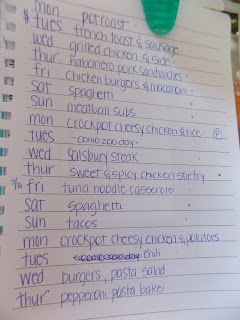 mon potroast
$ tues french toast & sausage
wed grilled chicken & side
thur habanero pork sandwiches
fri chicken burgers & macaroni
sat spaghetti
sun meatball subs
mon crockpot cheesy chicken & rice
tues -como zoo day-
wed salsbury steak
thur sweet & spicy chicken stir fry
fri tuna noodle casserole
sat spaghetti
sun tacos
mon crockpot cheesy chicken & potatoes
tues chili
wed burgers, pasta salad
thur pepperoni pasta bake